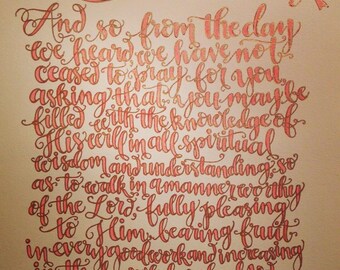 And so, from the day
we heard, we have not
ceased to pray for you,
asking that you may be
filled with the knowledge of
His will in all spiritual
wisdom and understanding, so
as to walk in a manner worthy
of the Lord, fully pleasing
to Him, bearing fruit
in every good work and increasing